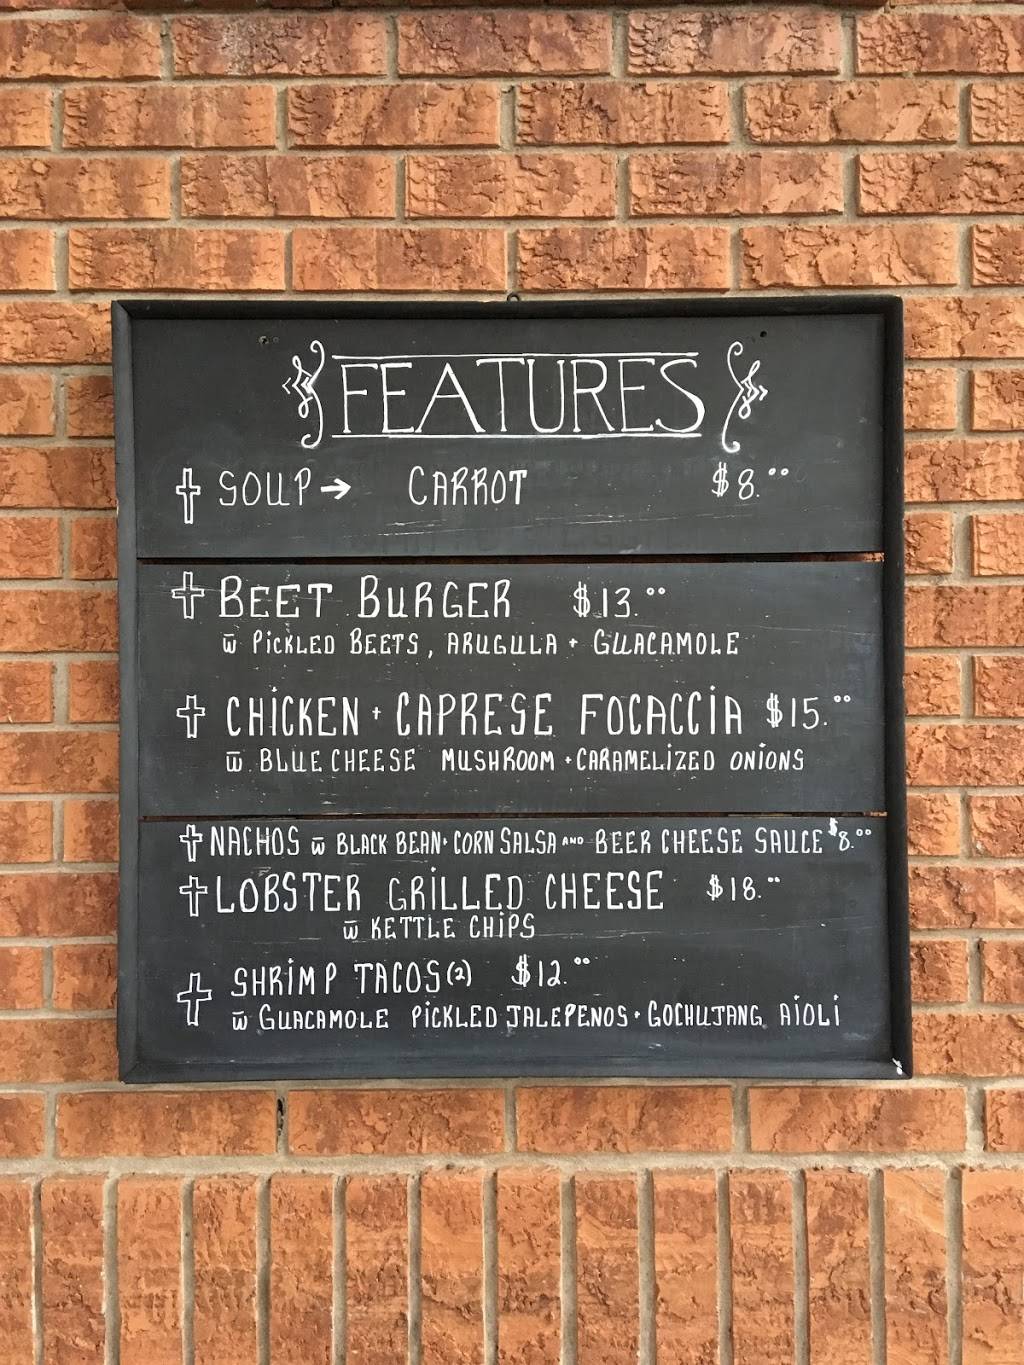 FEATURES
SOUP → CARROT $8.00
BEET BURGER $13.00
w̄ PiCKLED BEETS, ARUGULA + GUACAMOLE
CHiCKEN + CAPRESE FOCACCiA $15.00
w̄ BLUE CHEESE MUSHROOM + CARAMELiZED ONiONS
NACHOS w̄ BLACK BEAN + CORN SALSA AND BEER CHEESE SAUCE $8.00
LOBSTER GRiLLED CHEESE $18.00
w̄ KETTLE CHiPS
SHRiMP TACOS (2) $12.00
w̄ GUACAMOLE PiCKLED JALEPENOS + GOCHUJANG AiOLi